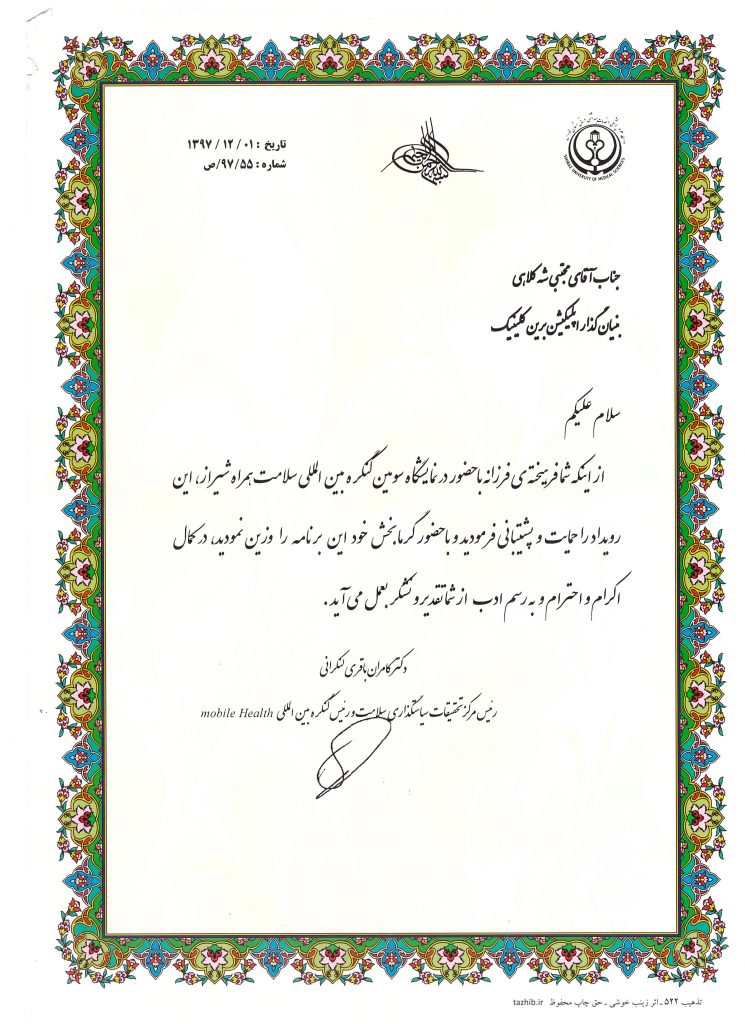 تاریخ : ۱۳۹۷ / ۱۲ / ۰۱
شماره : ۹۷/۵۵/ص
SHIRAZ UNIVERSITY OF MEDICAL SCIENCES
جناب آقای مجتبی شه کلاهی
بنیان گذار اپلیکیشن برین کلینیک
سلام علیکم
از اینکه شما فرهیخته ی فرزانه با حضور در نمایشگاه سومین کنگره بین المللی سلامت همراه شیراز، این
رویداد را حمایت و پشتیبانی فرمودید و با حضور گرمابخش خود این برنامه را وزین نمودید، در کمال
اکرام و احترام و به رسم ادب از شما تقدیر و تشکر بعمل می آید.
دکتر کامران باقری لنکرانی
رئیس مرکز تحقیقات سیاستگذاری سلامت و رئیس کنگره بین المللی mobile Health
تذهیب ۵۲۲ ـ اثر زینب خوشی ـ حق چاپ محفوظ tazhib.ir